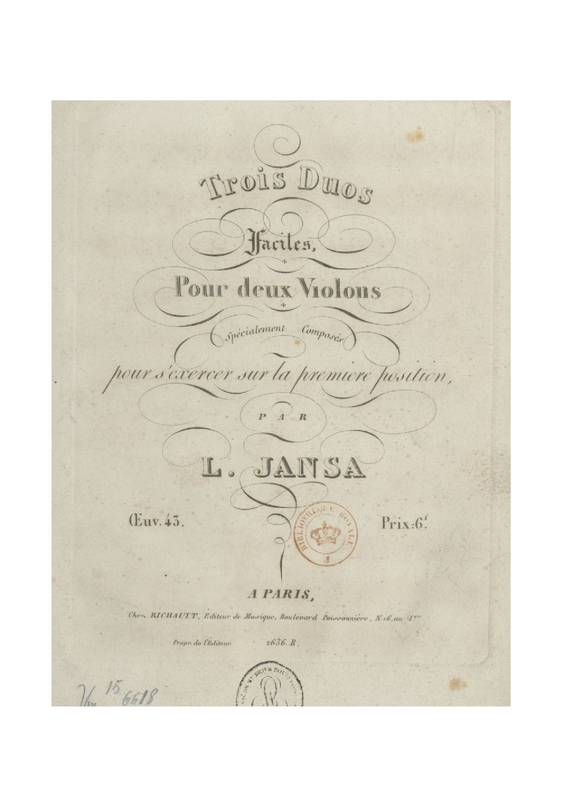 Trois Duos
Faciles,
Pour deux Violons
Spécialement Composés
pour s'exercer sur la premiere position,
PAR
L. JANSA
Œuv. 43.
Prix: 6f
BIBLIOTHEQUE ROYALE
A PARIS,
Chez RICHAULT, Éditeur de Musique, Boulevard Poissonnière, N. 16, au 1er
Propr. de l'Éditeur.
2636. R.
Vm 15
6618